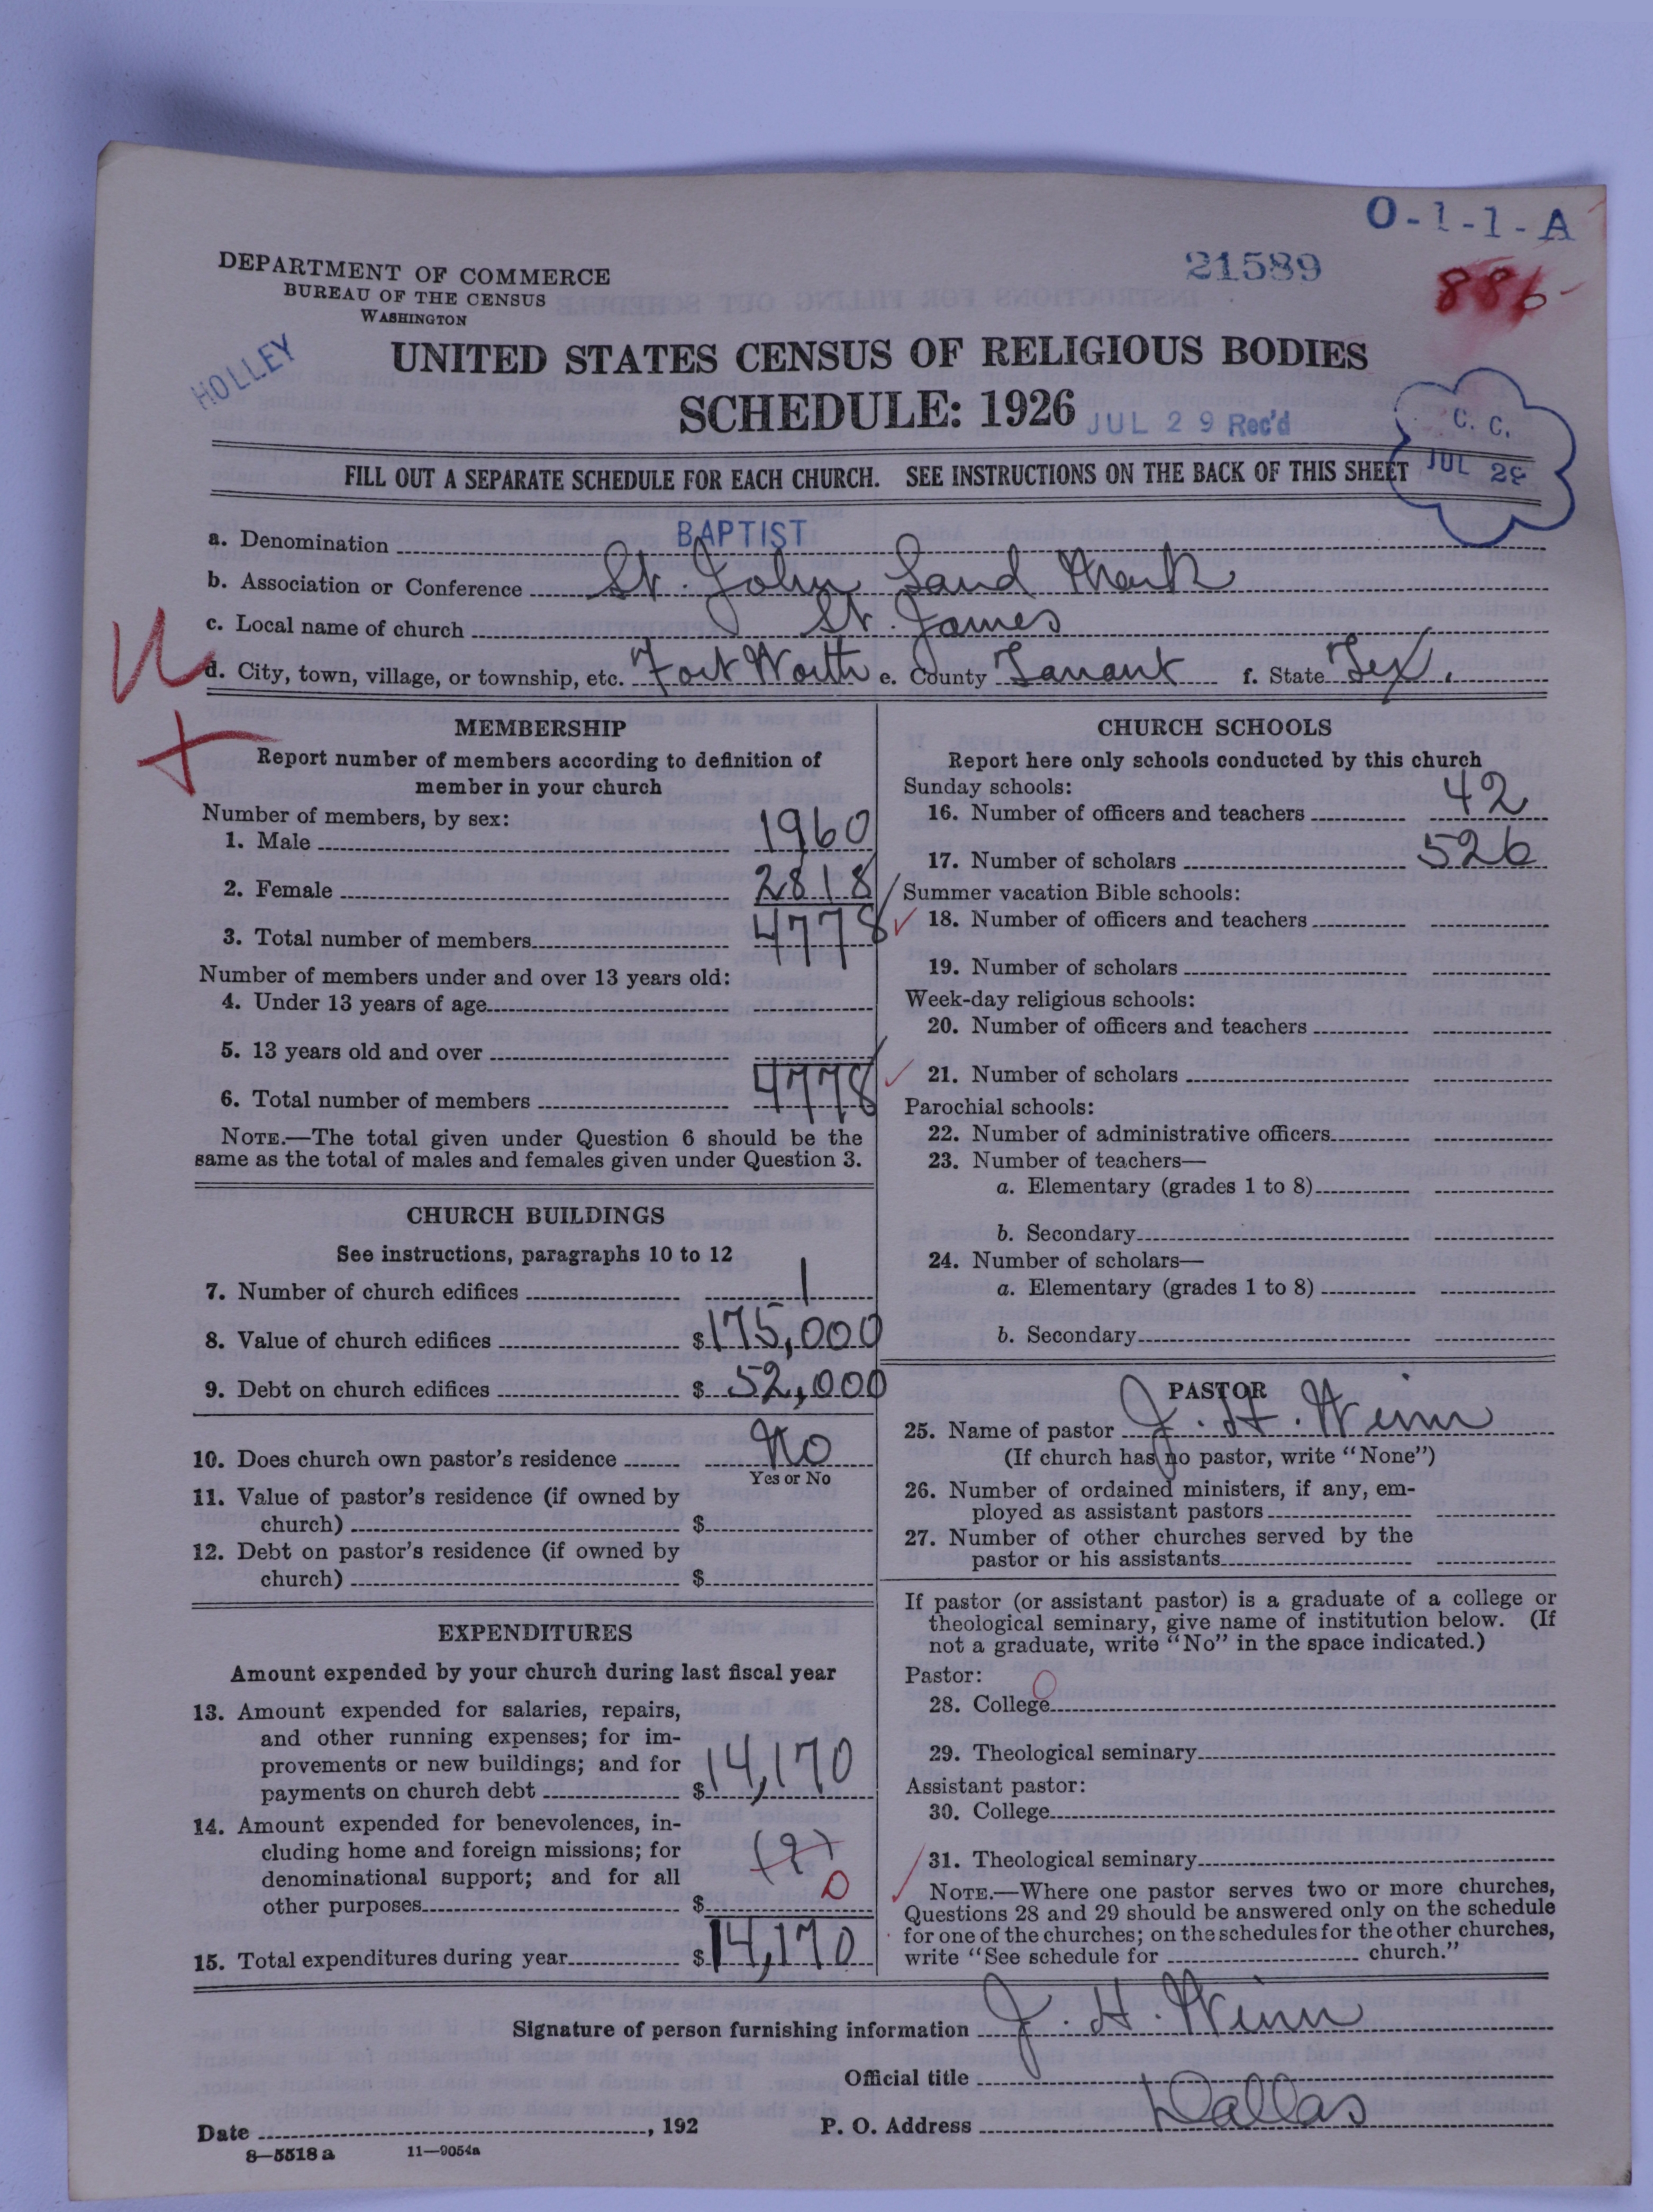 O-1-1-A
21589
886
DEPARTMENT OF COMMERCE
BUREAU OF THE CENSUS
WASHINGTON
HOLLEY
UNITED STATES CENSUS OF RELIGIOUS BODIES
SCHEDULE: 1926
JUL 29 Rec'd
C. C.
JUL 29
FILL OUT A SEPARATE SCHEDULE FOR EACH CHURCH. SEE INSTRUCTIONS ON THE BACK OF THIS SHEET
a. Denomination BAPTIST
b. Association or Conference St. John Land
c. Local name of church St. James
d. City, town, village, or township, etc. Fort Worth e. County Tarrant f. State Tex.
MEMBERSHIP
Report number of members according to definition of
member in your church
Number of members, by sex:
1. Male 1960
2. Female 2818
3. Total number of members 4778
Number of members under and over 13 years old:
4. Under 13 years of age
5. 13 years old and over
6. Total number of members 4778
NOTE.—The total given under Question 6 should be the
same as the total of males and females given under Question 3.
CHURCH BUILDINGS
See instructions, paragraphs 10 to 12
7. Number of church edifices 1
8. Value of church edifices $175,000
9. Debt on church edifices $ 52,000
10. Does church own pastor's residence No
Yes or No
11. Value of pastor's residence (if owned by
church) $
12. Debt on pastor's residence (if owned by
church) $
EXPENDITURES
Amount expended by your church during last fiscal year
13. Amount expended for salaries, repairs,
and other running expenses; for im-
provements or new buildings; and for
payments on church debt $14,170
14. Amount expended for benevolences, in-
cluding home and foreign missions; for (?)
denominational support; and for all 0
other purposes $
15. Total expenditures during year $14,170
CHURCH SCHOOLS
Report here only schools conducted by this church
Sunday schools:
16. Number of officers and teachers 42
17. Number of scholars 526
Summer vacation Bible schools:
18. Number of officers and teachers
19. Number of scholars
Week-day religious schools:
20. Number of officers and teachers
21. Number of scholars
Parochial schools:
22. Number of administrative officers
23. Number of teachers—
a. Elementary (grades 1 to 8)
b. Secondary
24. Number of scholars—
a. Elementary (grades 1 to 8)
b. Secondary
PASTOR
25. Name of pastor J. H. Winn
(If church has no pastor, write "None")
26. Number of ordained ministers, if any, em-
ployed as assistant pastors
27. Number of other churches served by the
pastor or his assistants
If pastor (or assistant pastor) is a graduate of a college or
theological seminary, give name of institution below. (If
not a graduate, write "No" in the space indicated.)
Pastor: 0
28. College
29. Theological seminary
Assistant pastor:
30. College
31. Theological seminary
NOTE.—Where one pastor serves two or more churches,
Questions 28 and 29 should be answered only on the schedule
for one of the churches; on the schedules for the other churches,
write "See schedule for church."
Signature of person furnishing information J. H. Winn
Official title
Date , 192 P. O. Address Dallas
8—5518 a 11—9054a